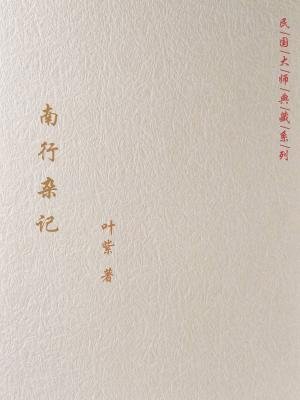 民国大师典藏系列
南行杂记
叶紫 著